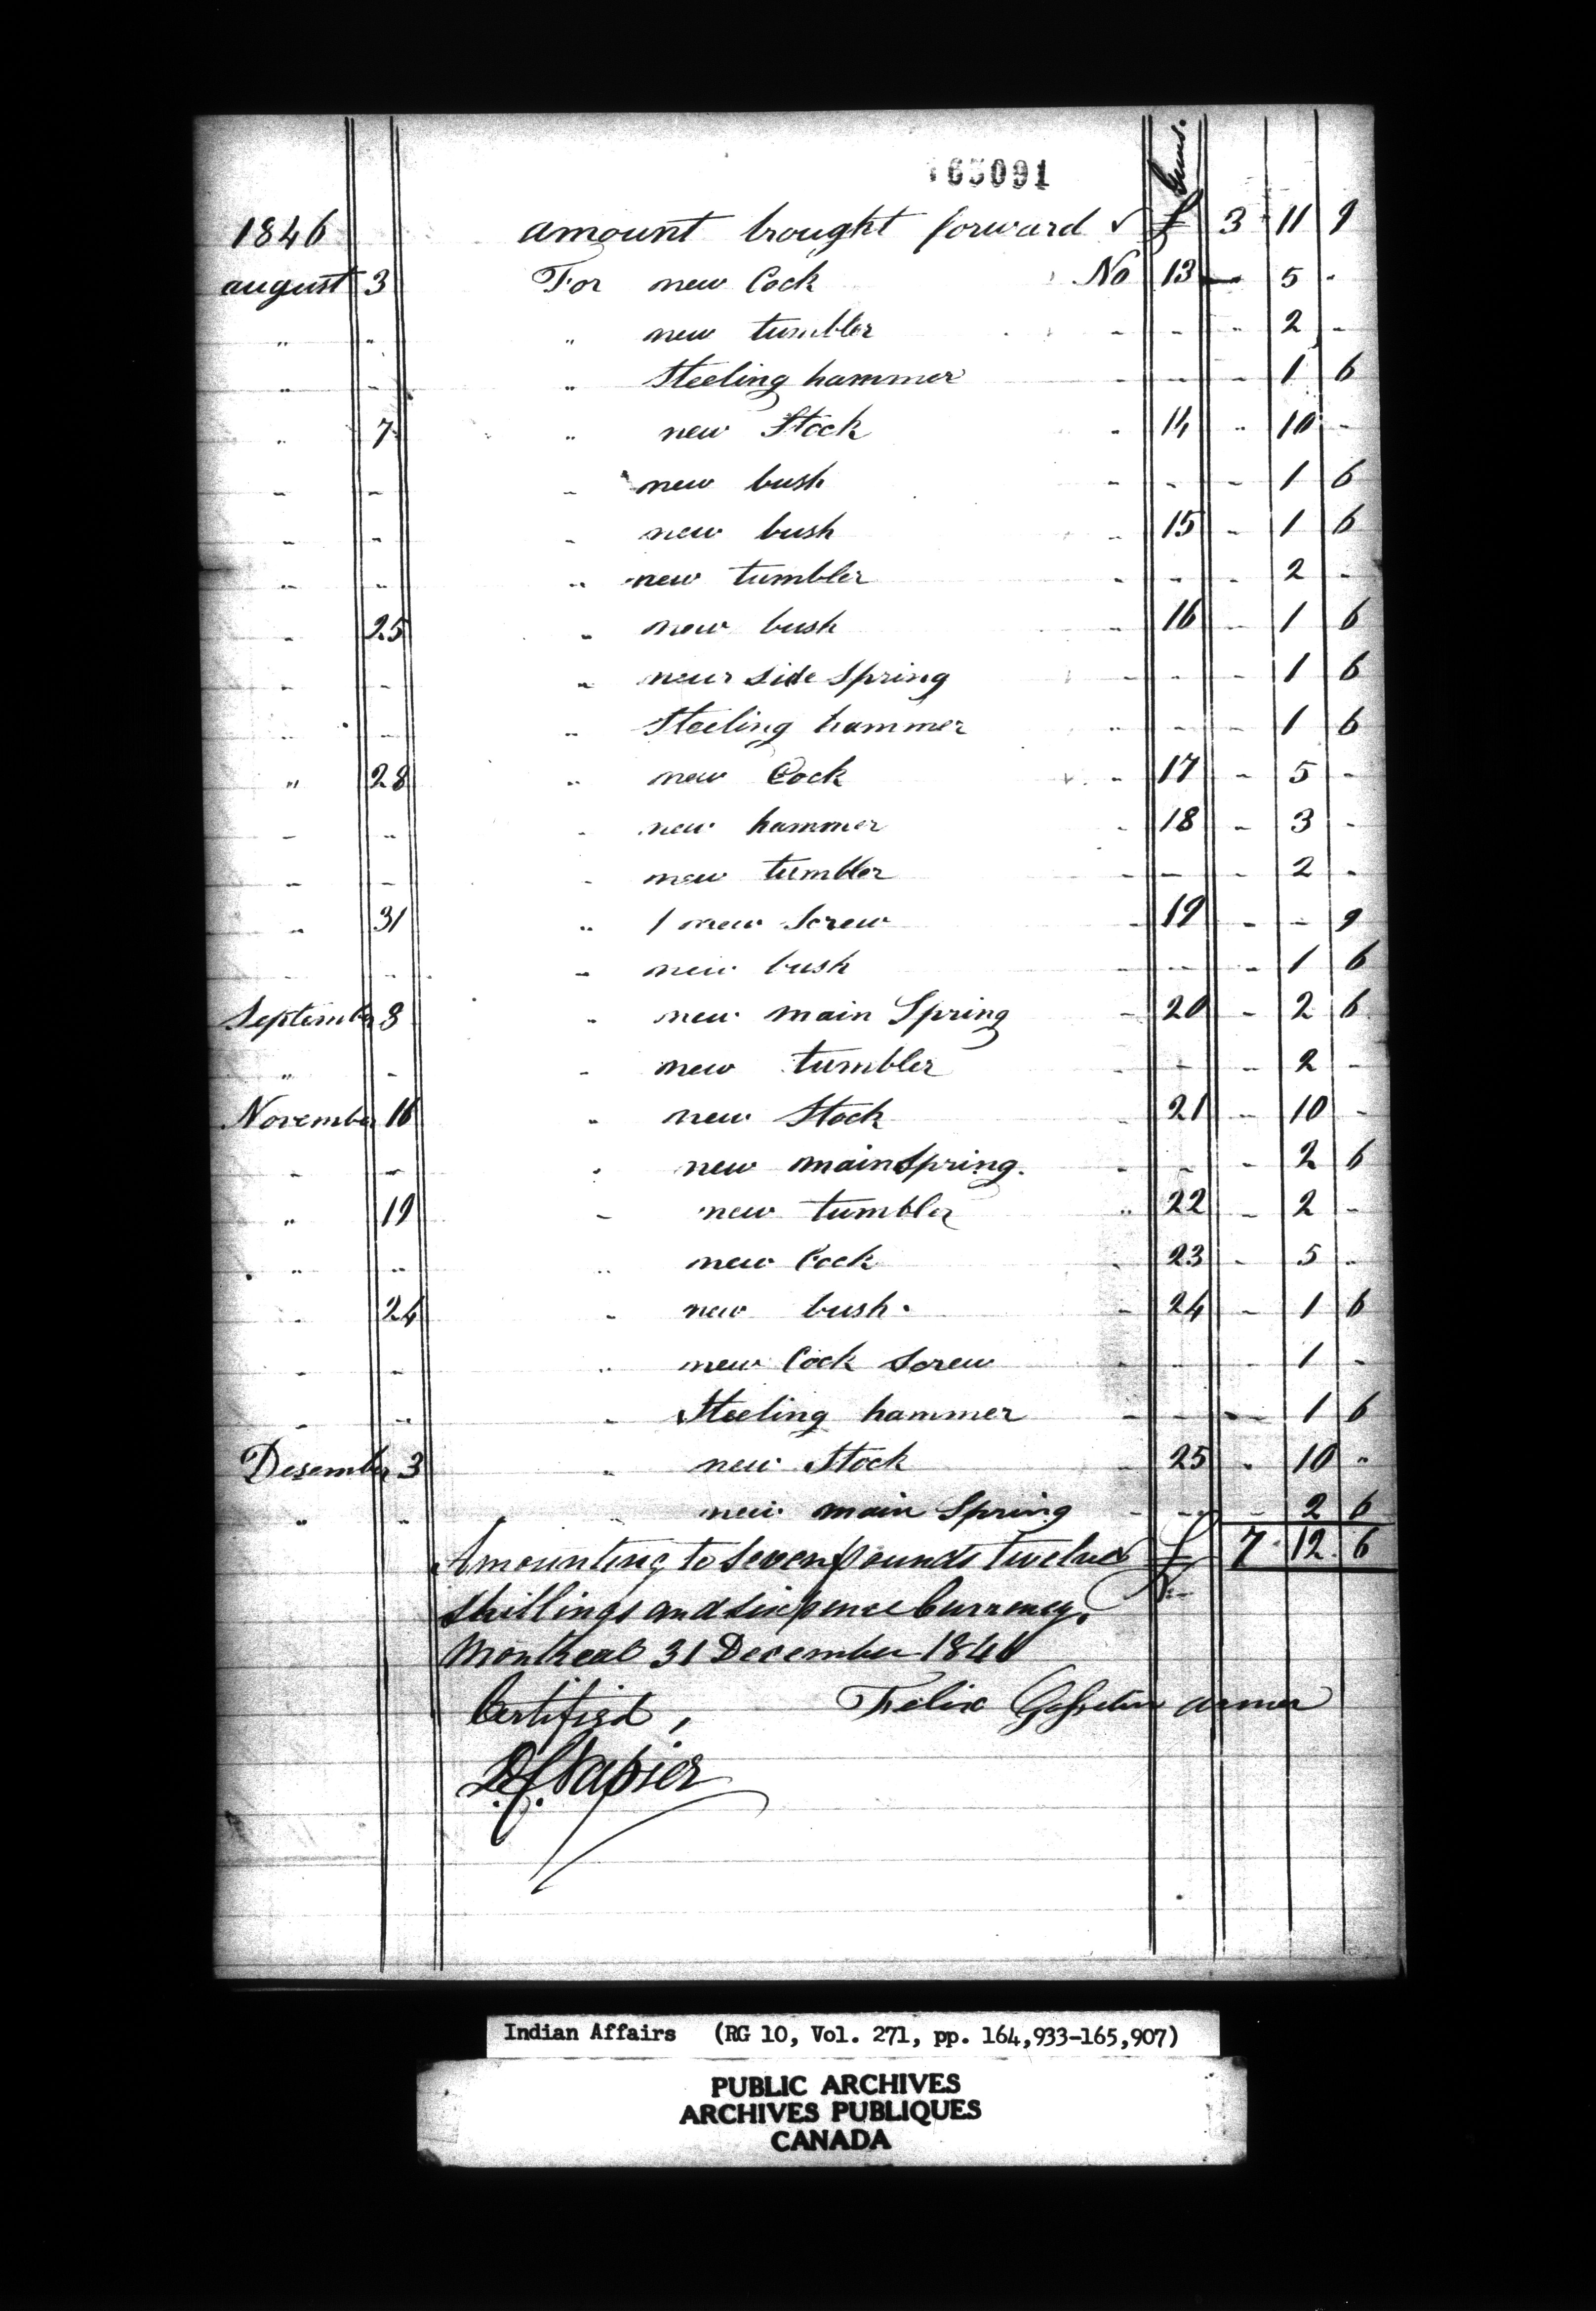 165091
Guns.
1846 amount brought forward £ 3 11 9
august 3 For new Cock No 13 - 5 -
" " " new tumbler - - " 2 -
" - " Steeling hammer - - - 1 6
" 7 " new Stock - 14 " 10 -
- - - new bush - - - 1 6
- - - new bush - 15 - 1 6
- - " new tumbler - - - 2 -
- 25 - new bush - 16 - 1 6
- - - new side Spring - - - 1 6
- - " Steeling hammer - - - 1 6
" 28 " new Cock - 17 - 5 -
- - - new hammer - 18 - 3 -
- - - new tumbler - - - 2 -
" 31 " 1 new Screw - 19 - - 9
- - - new bush - - - 1 6
September 8 - new main Spring - 20 - 2 6
" - - new tumbler - - - 2 -
November 16 - new Stock - 21 - 10 -
- - - new mainSpring. - - - 2 6
" 19 - new tumbler " 22 - 2 -
" " " new Cock - 23 - 5 -
- 24 - new bush - 24 - 1 6
- - " new Cock Screw - - - 1 -
- - - Steeling hammer - - - 1 6
Desember 3 - new Stock - 25 - 10 -
" " new main Spring - - - 2 6
Amounting to Seven pounds twelve £ 7 12 6
Shillings and sixpence Currency.
Montreal 31 December 1846
Certified, Felix armer
D.C. Napier
Indian Affairs (RG 10, Vol. 271, pp. 164,933-165,907)
PUBLIC ARCHIVES
ARCHIVES PUBLIQUES
CANADA